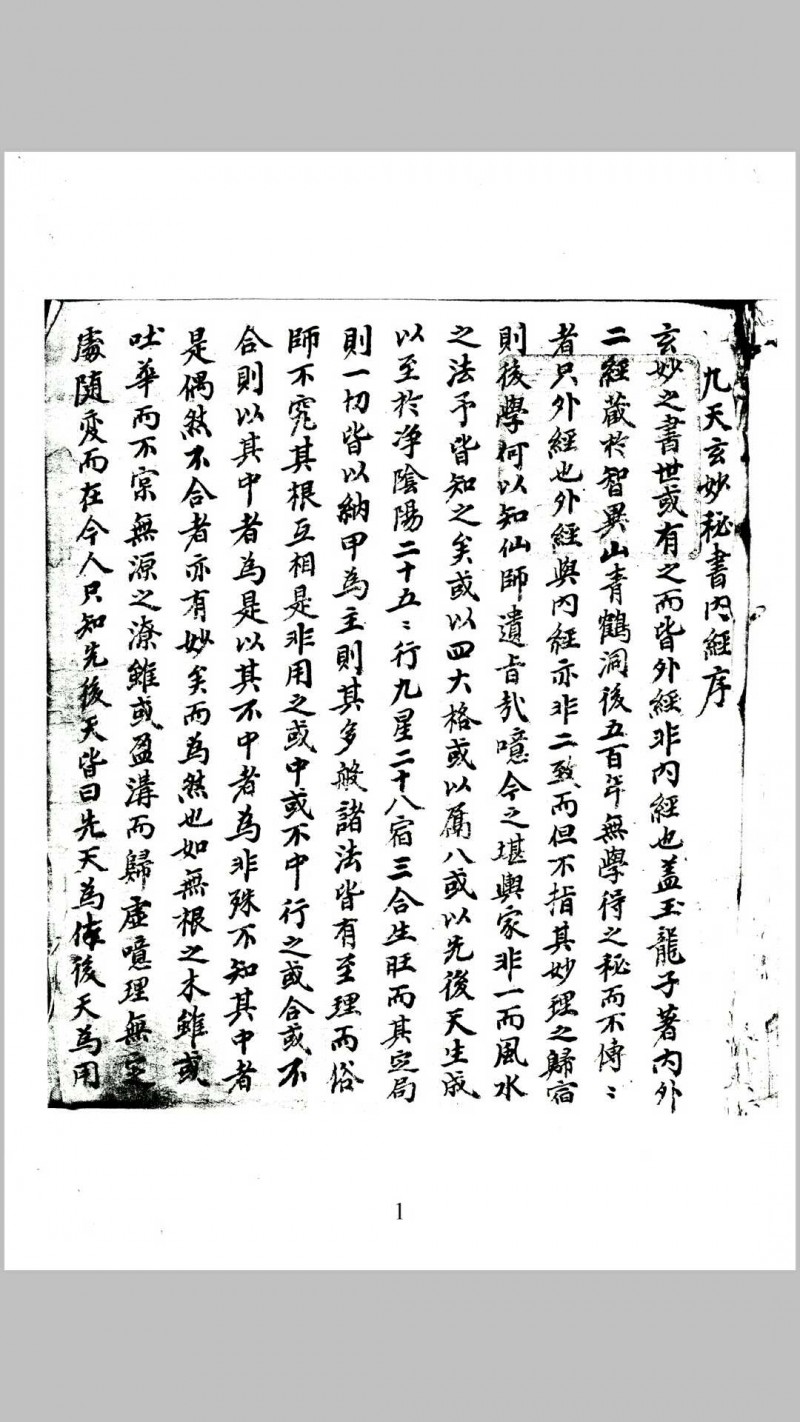 九天玄妙秘書內經序
玄妙之書世或有之而皆外經非內經也盖玉龍子著內外
二經藏於智異山青鶴洞後五百年無學得之秘而不傳〻
者只外經也外經與內經亦非二致而但不指其妙理之歸宿
則後學何以知仙師遺旨哉噫今之堪輿家非一而風水
之法予皆知之矣或以四大格或以屬八或以先後天生成
以至於净陰陽二十五〻行九星二十八宿三合生旺而其定局
則一切皆以納甲為主則其多般諸法皆有至理而俗
師不究其根互相是非用之或中或不中行之或合或不
合則以其中者為是以其不中者為非殊不知其中者
是偶然不合者亦有妙矣而為然也如無根之木雖或
吐華而不宲無源之潦雖或盈溝而歸虛噫理無定
處随変而在今人只知先後天皆曰先天為体後天為用
1